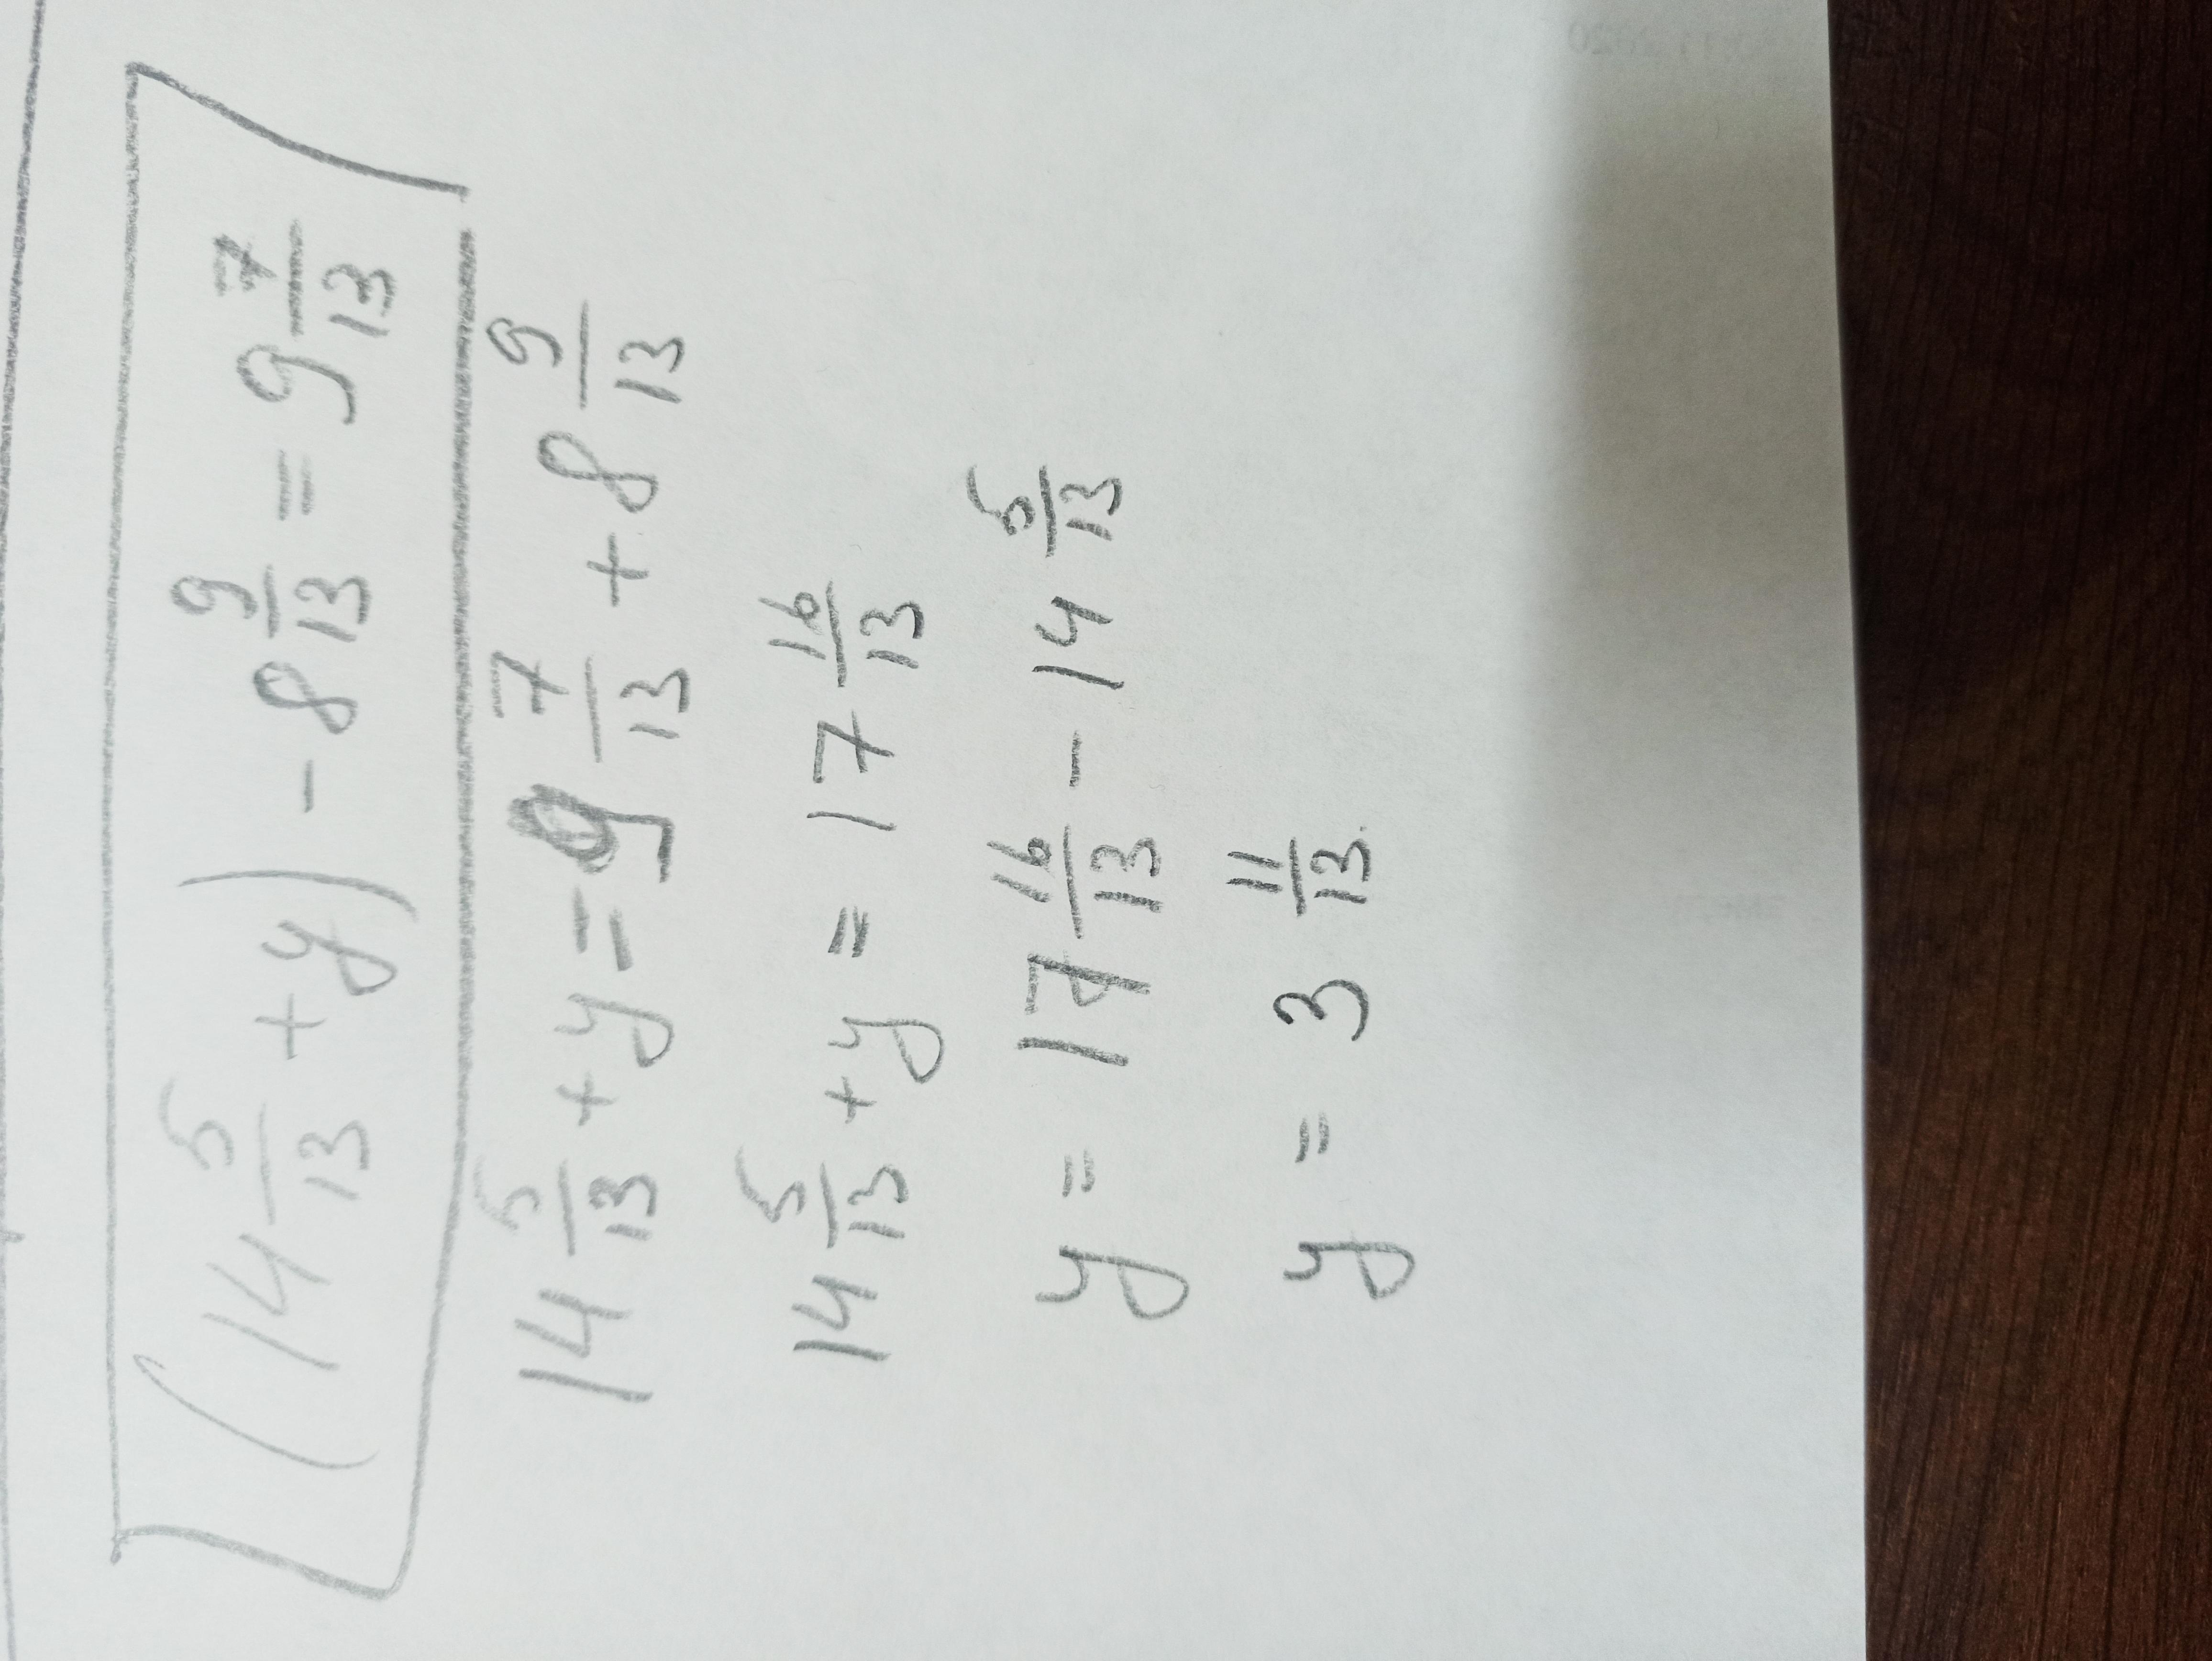 (14 5/13 + y) - 8 9/13 = 9 7/13
14 5/13 + y = 9 7/13 + 8 9/13
14 5/13 + y = 17 16/13
y = 17 16/13 - 14 5/13
y = 3 11/13